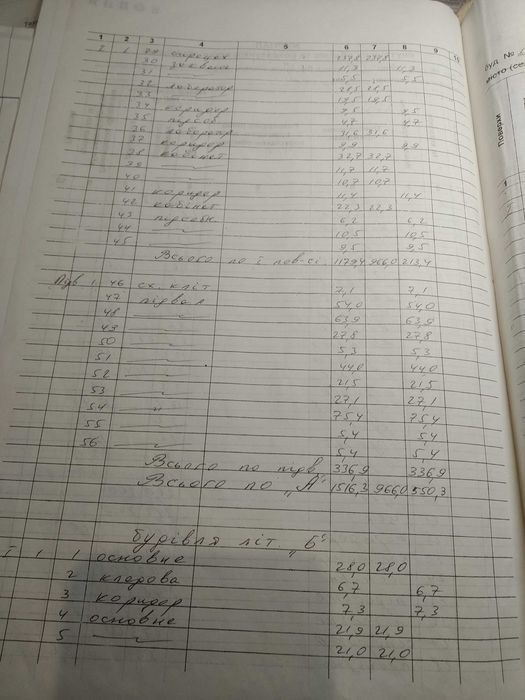 1 2 3 4 5 6 7 8 9 10
30
31 5,5 5,5
32 28,5 28,5
33 18,5 18,5
34 коридор
35 4,7 4,7
36 31,6 31,6
37 коридор 9,9 9,9
38 кабінет 32,7 32,7
39 —"— 11,7 11,7
40 —"— 10,7 10,7
41 коридор 11,4 11,4
42 кабінет 22,3 22,3
43 6,2 6,2
44 —"— 10,5 10,5
45 —"— 9,5 9,5
Всього по I пов-сі 1179,4 966,0 213,4
Підв 1 46 сх. кліт 7,1 7,1
47 підвал 54,0 54,0
48 —"— 63,9 63,9
49 —"— 27,8 27,8
50 —"— 5,3 5,3
51 —"— 44,0 44,0
52 —"— 21,5 21,5
53 —"— 27,1 27,1
54 —"— 75,4 75,4
55 —"— 5,4 5,4
56 —"— 5,4 5,4
Всього по підв. 336,9 336,9
Всього по „А" 1516,3 966,0 550,3
будівля літ. „Б"
I 1 1 основне 28,0 28,0
2 кладова 6,7 6,7
3 коридор 7,3 7,3
4 основне 21,9 21,9
5 —"— 21,0 21,0
буд. №
місто (се
Поверхи